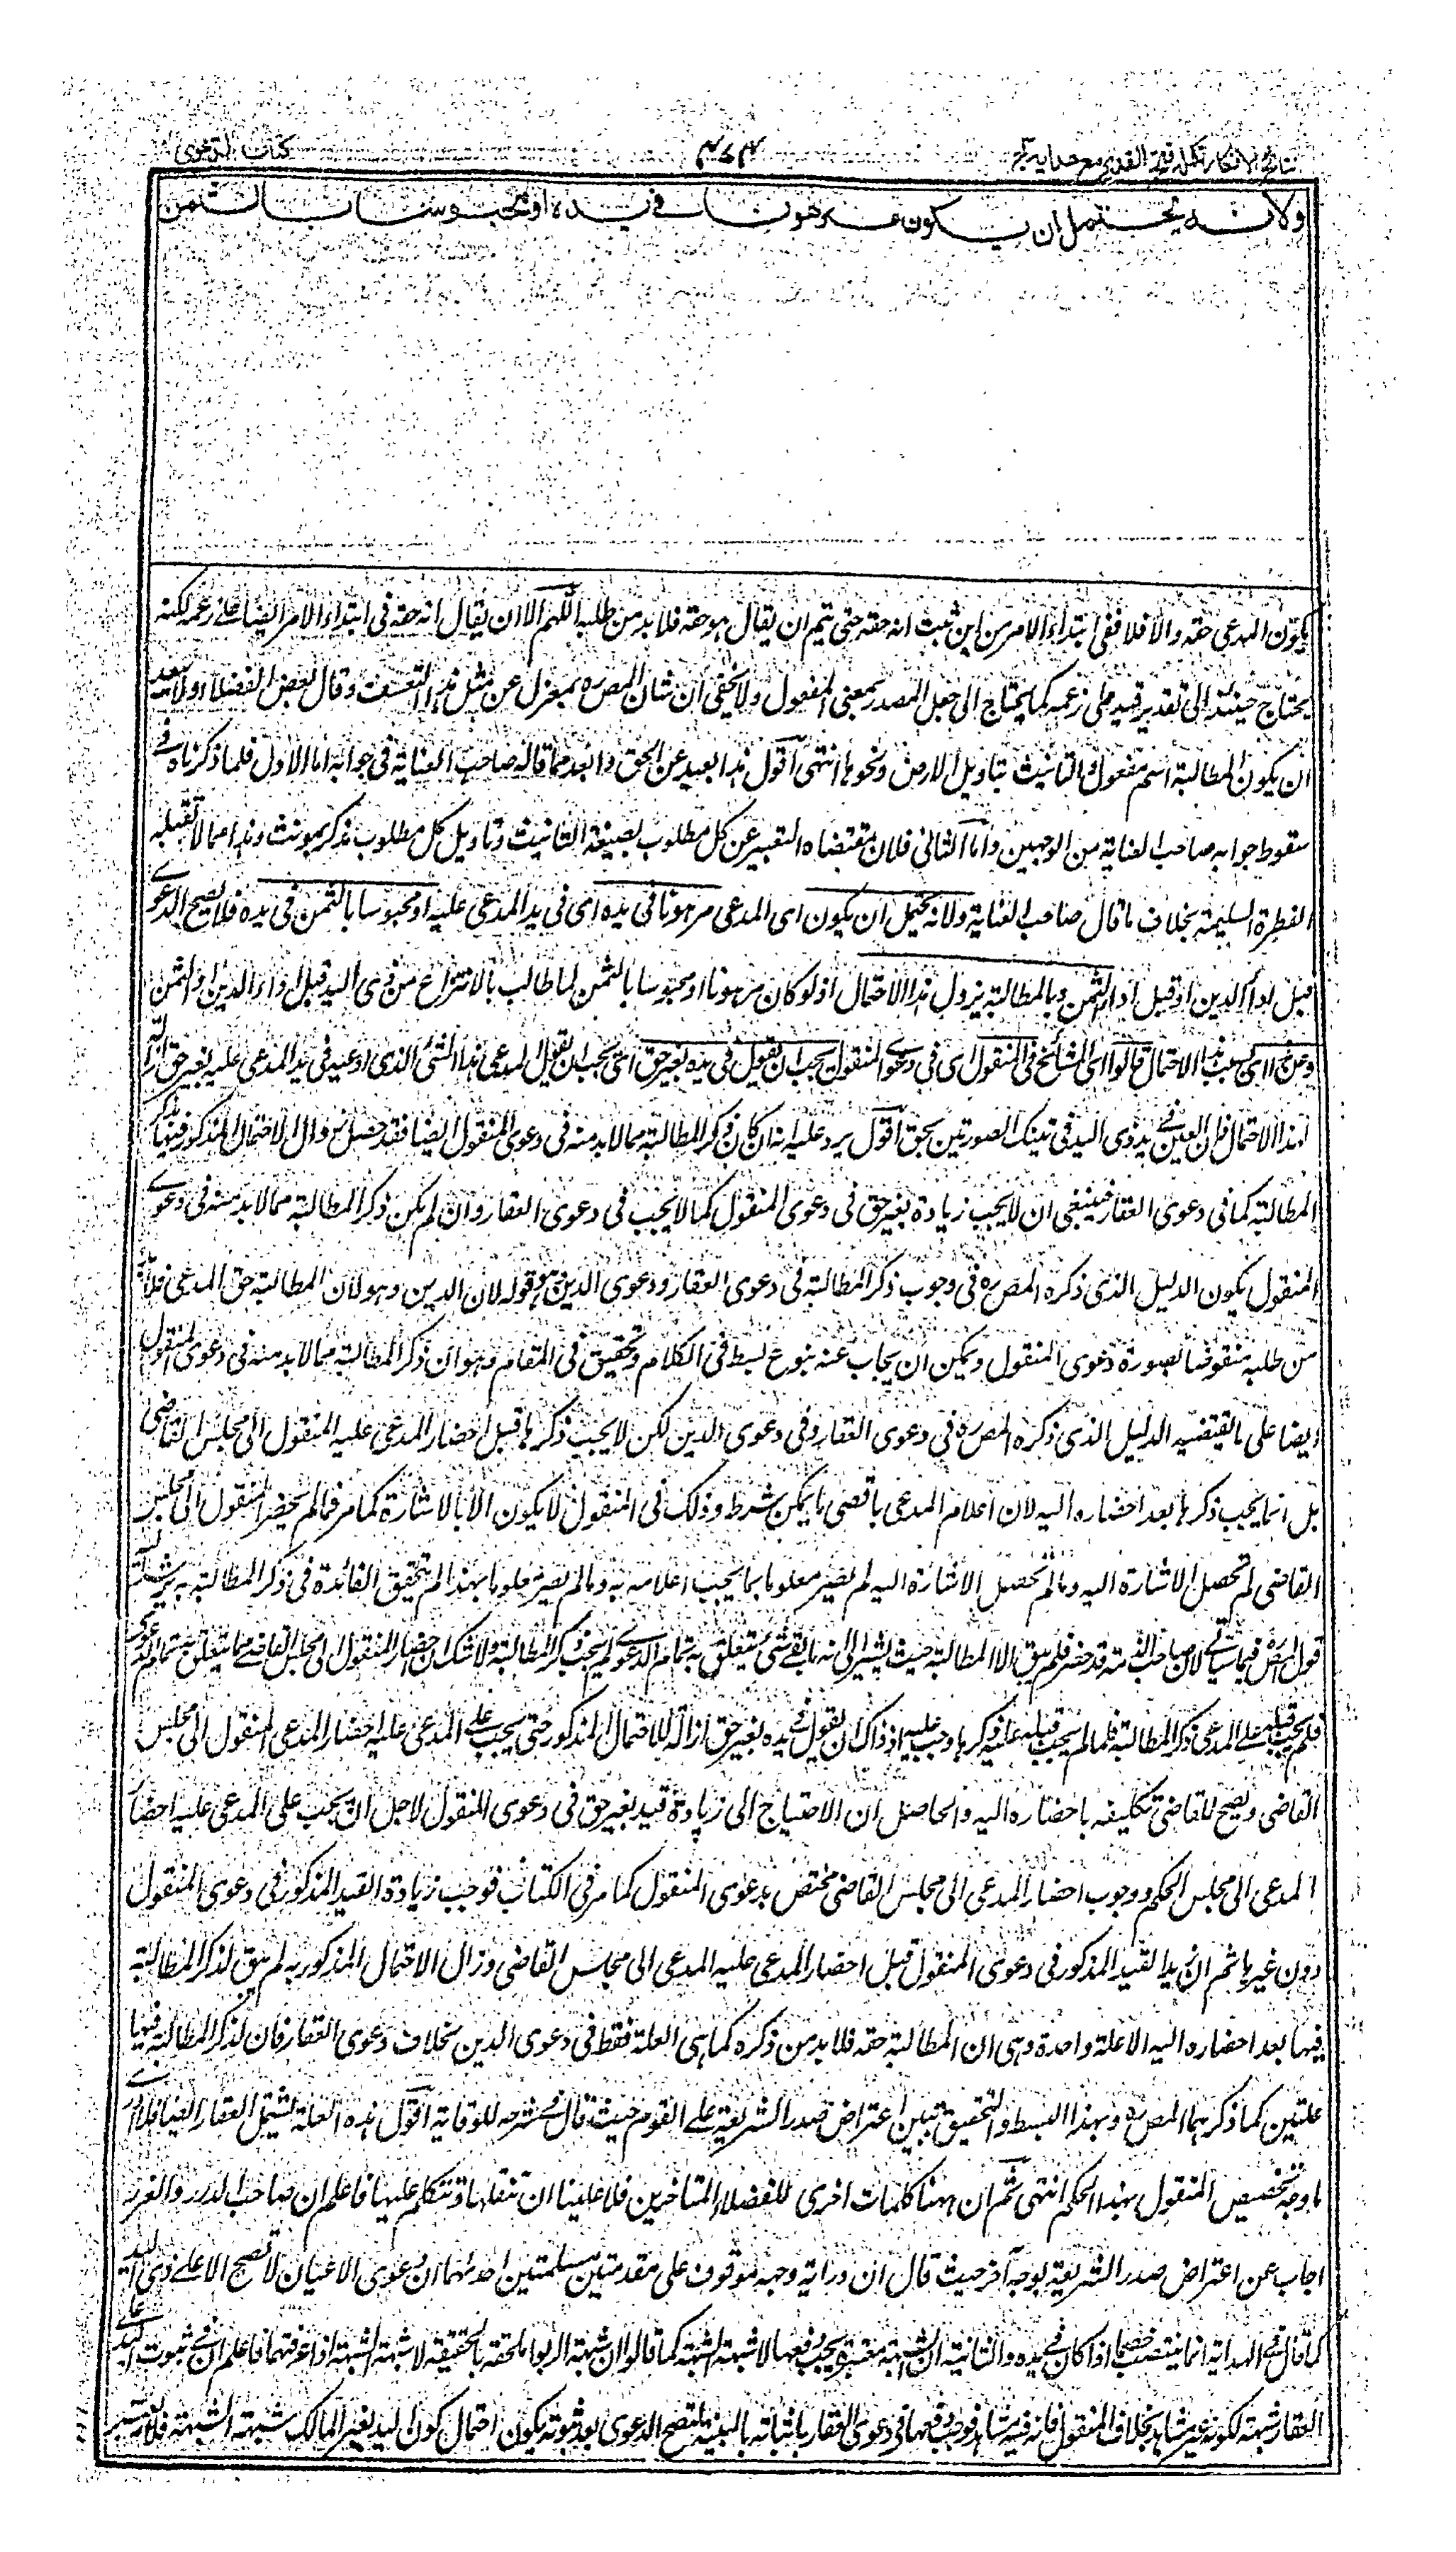 نتائج الافكار تكملة فتح القدير مع هداية ج ٣
٣٧٣
كتاب الدعوى
ولانه يحتمل ان يكون مرهونا فى يده او محبوسا بالثمن
يكون المدعى حقه والا فلا ففى ابتداء الامر من اين ثبت انه حقه حتى يتم ان يقال هو حقه فلا بد من طلبه اللهم الا ان يقال انه حقه فى ابتداء الامر ايضا على زعمه لكنه
يحتاج حينئذ الى تقدير قيد على زعمه كما يحتاج الى جعل المصدر بمعنى المفعول ولا يخفى ان شان المصرح بمعزل عن مثل هذا التعسف وقال بعض الفضلاء ولا يبعد
ان يكون المطالبة اسم مفعول والتانيث بتاويل الارض ونحوها انتهى اقول هذا بعيد عن الحق وابعد مما قاله صاحب العناية فى جوابه اما الاول فلما ذكرناه فى
سقوط جوابه صاحب العناية من الوجهين واما الثانى فلان مقتضاه التعبير عن كل مطلوب بصيغة التانيث وتاويل كل مطلوب مذكر بمونث وهذا مما لا تقبله
الفطرة السليمة بخلاف ما قال صاحب العناية ولانه يحتمل ان يكون اى المدعى مرهونا فى يده اى فى يد المدعى عليه او محبوسا بالثمن فى يده فلا يصح الدعوى
قبل اداء الدين او قبل اداء الثمن وبالمطالبة يزول هذا الاحتمال اذ لو كان مرهونا او محبوسا بالثمن لما طالب بالانتزاع من ذى اليد قبل اداء الدين او الثمن
وعن هذا اى بسبب هذا الاحتمال قالوا اى المشائخ فى المنقول اى فى دعوى المنقول يجب ان يقول فى يده بغير حق اى يجب ان يقول المدعى هذا الشئ الذى ادعيه فى يد المدعى عليه بغير حق ازالة
لهذا الاحتمال فان العين فى يد ذى اليد فى تينك الصورتين بحق اقول يرد عليه انه ان كان ذكر المطالبة مما لا بد منه فى دعوى المنقول ايضا فقد حصل زوال الاحتمال المذكور فيها بذكر
المطالبة كما فى دعوى العقار فينبغى ان لا يجب زيادة بغير حق فى دعوى المنقول كما لا يجب فى دعوى العقار وان لم يكن ذكر المطالبة مما لا بد منه فى دعوى
المنقول يكون الدليل الذى ذكره المص ره فى وجوب ذكر المطالبة فى دعوى العقار ودعوى الدين وهو قوله لان الدين وهو لان المطالبة حق المدعى فلا بد
من طلبه منقوضا بصورة دعوى المنقول ويمكن ان يجاب عنه بنوع بسط فى الكلام وتحقيق فى المقام وهو ان ذكر المطالبة مما لا بد منه فى دعوى المنقول
ايضا على ما يقتضيه الدليل الذى ذكره المص ره فى دعوى العقار وفى دعوى الدين لكن لا يجب ذكرها قبل احضار المدعى عليه المنقول الى مجلس القاضى
بل انما يجب ذكرها بعد احضاره اليه لان اعلام المدعى باقصى ما يمكن شرط وذلك فى المنقول لا يكون الا بالاشارة كما مر فما لم يحضر المنقول الى مجلس
القاضى لم تحصل الاشارة اليه وما لم تحصل الاشارة اليه لم يصر معلوما بما يجب اعلامه به وما لم يصر معلوما بهذا لم يتحقق الفائدة فى ذكر المطالبة به يرشد اليه
قول المص فيما سياتى لان صاحب الذمة قد حضر فلم يبق الا المطالبة حيث يشير الى انه ما بقى شئ يتعلق به تمام الدعوى لم يجب ذكر المطالبة ولا شك ان احضار المنقول الى مجلس القاضى مما يتعلق به تمام الدعوى
فلم يجب قبله على المدعى ذكر المطالبة فلما لم يجب قبله عليه ذكرها وجب عليه اذ ذاك ان يقول فى يده بغير حق ازالة للاحتمال المذكور حتى يجب على المدعى عليه احضار المدعى المنقول الى مجلس
القاضى ويصح للقاضى تكليفه باحضاره اليه والحاصل ان الاحتياج الى زيادة قيد بغير حق فى دعوى المنقول لاجل ان يجب على المدعى عليه احضار
المدعى الى مجلس الحكم ووجوب احضار المدعى الى مجلس القاضى مختص بدعوى المنقول كما مر فى الكتاب فوجب زيادة القيد المذكور فى دعوى المنقول
دون غيرها ثم ان زيد القيد المذكور فى دعوى المنقول قبل احضار المدعى عليه المدعى الى مجلس القاضى وزال الاحتمال المذكور به لم يبق لذكر المطالبة
فيها بعد احضاره اليه الا علة واحدة وهى ان المطالبة حقه فلا بد من ذكره كما هى العلة فقط فى دعوى الدين بخلاف دعوى العقار فان لذكر المطالبة فيها
علتين كما ذكرهما المص ره وبهذا البسط والتحقيق تبين اعتراض صدر الشريعة على القوم حيث قال فى شرحه للوقاية اقول هذه العلة تشمل العقار ايضا فلا ادرى
ما وجه تخصيص المنقول بهذا الحكم انتهى ثم ان ههنا كلمات اخرى للفضلاء المتاخرين فلا علينا ان ننقلها ونتكلم عليها فاعلم ان صاحب الدرر والغرر
اجاب عن اعتراض صدر الشريعة بوجه آخر حيث قال ان دراية وجهه موقوف على مقدمتين مسلمتين احدهما ان دعوى الاعيان لا تصح الا على ذى اليد
كما قال فى الهداية انما ينتصب خصما اذا كان فى يده والثانية ان الشبهة معتبرة يجب دفعها لا شبهة الشبهة كما قالوا ان شبهة الربوا ملحقة بالحقيقة لا شبهة الشبهة اذا عرفتهما فاعلم ان فى ثبوت اليد على
العقار شبهة لكونه غير مشاهد بخلاف المنقول فانه فيه مشاهد فوجب دفعها فى دعوى العقار باثباته بالبينة لتصح الدعوى وبعد ثبوته يكون احتمال كون اليد لغير المالك شبهة الشبهة فلا تعتبر